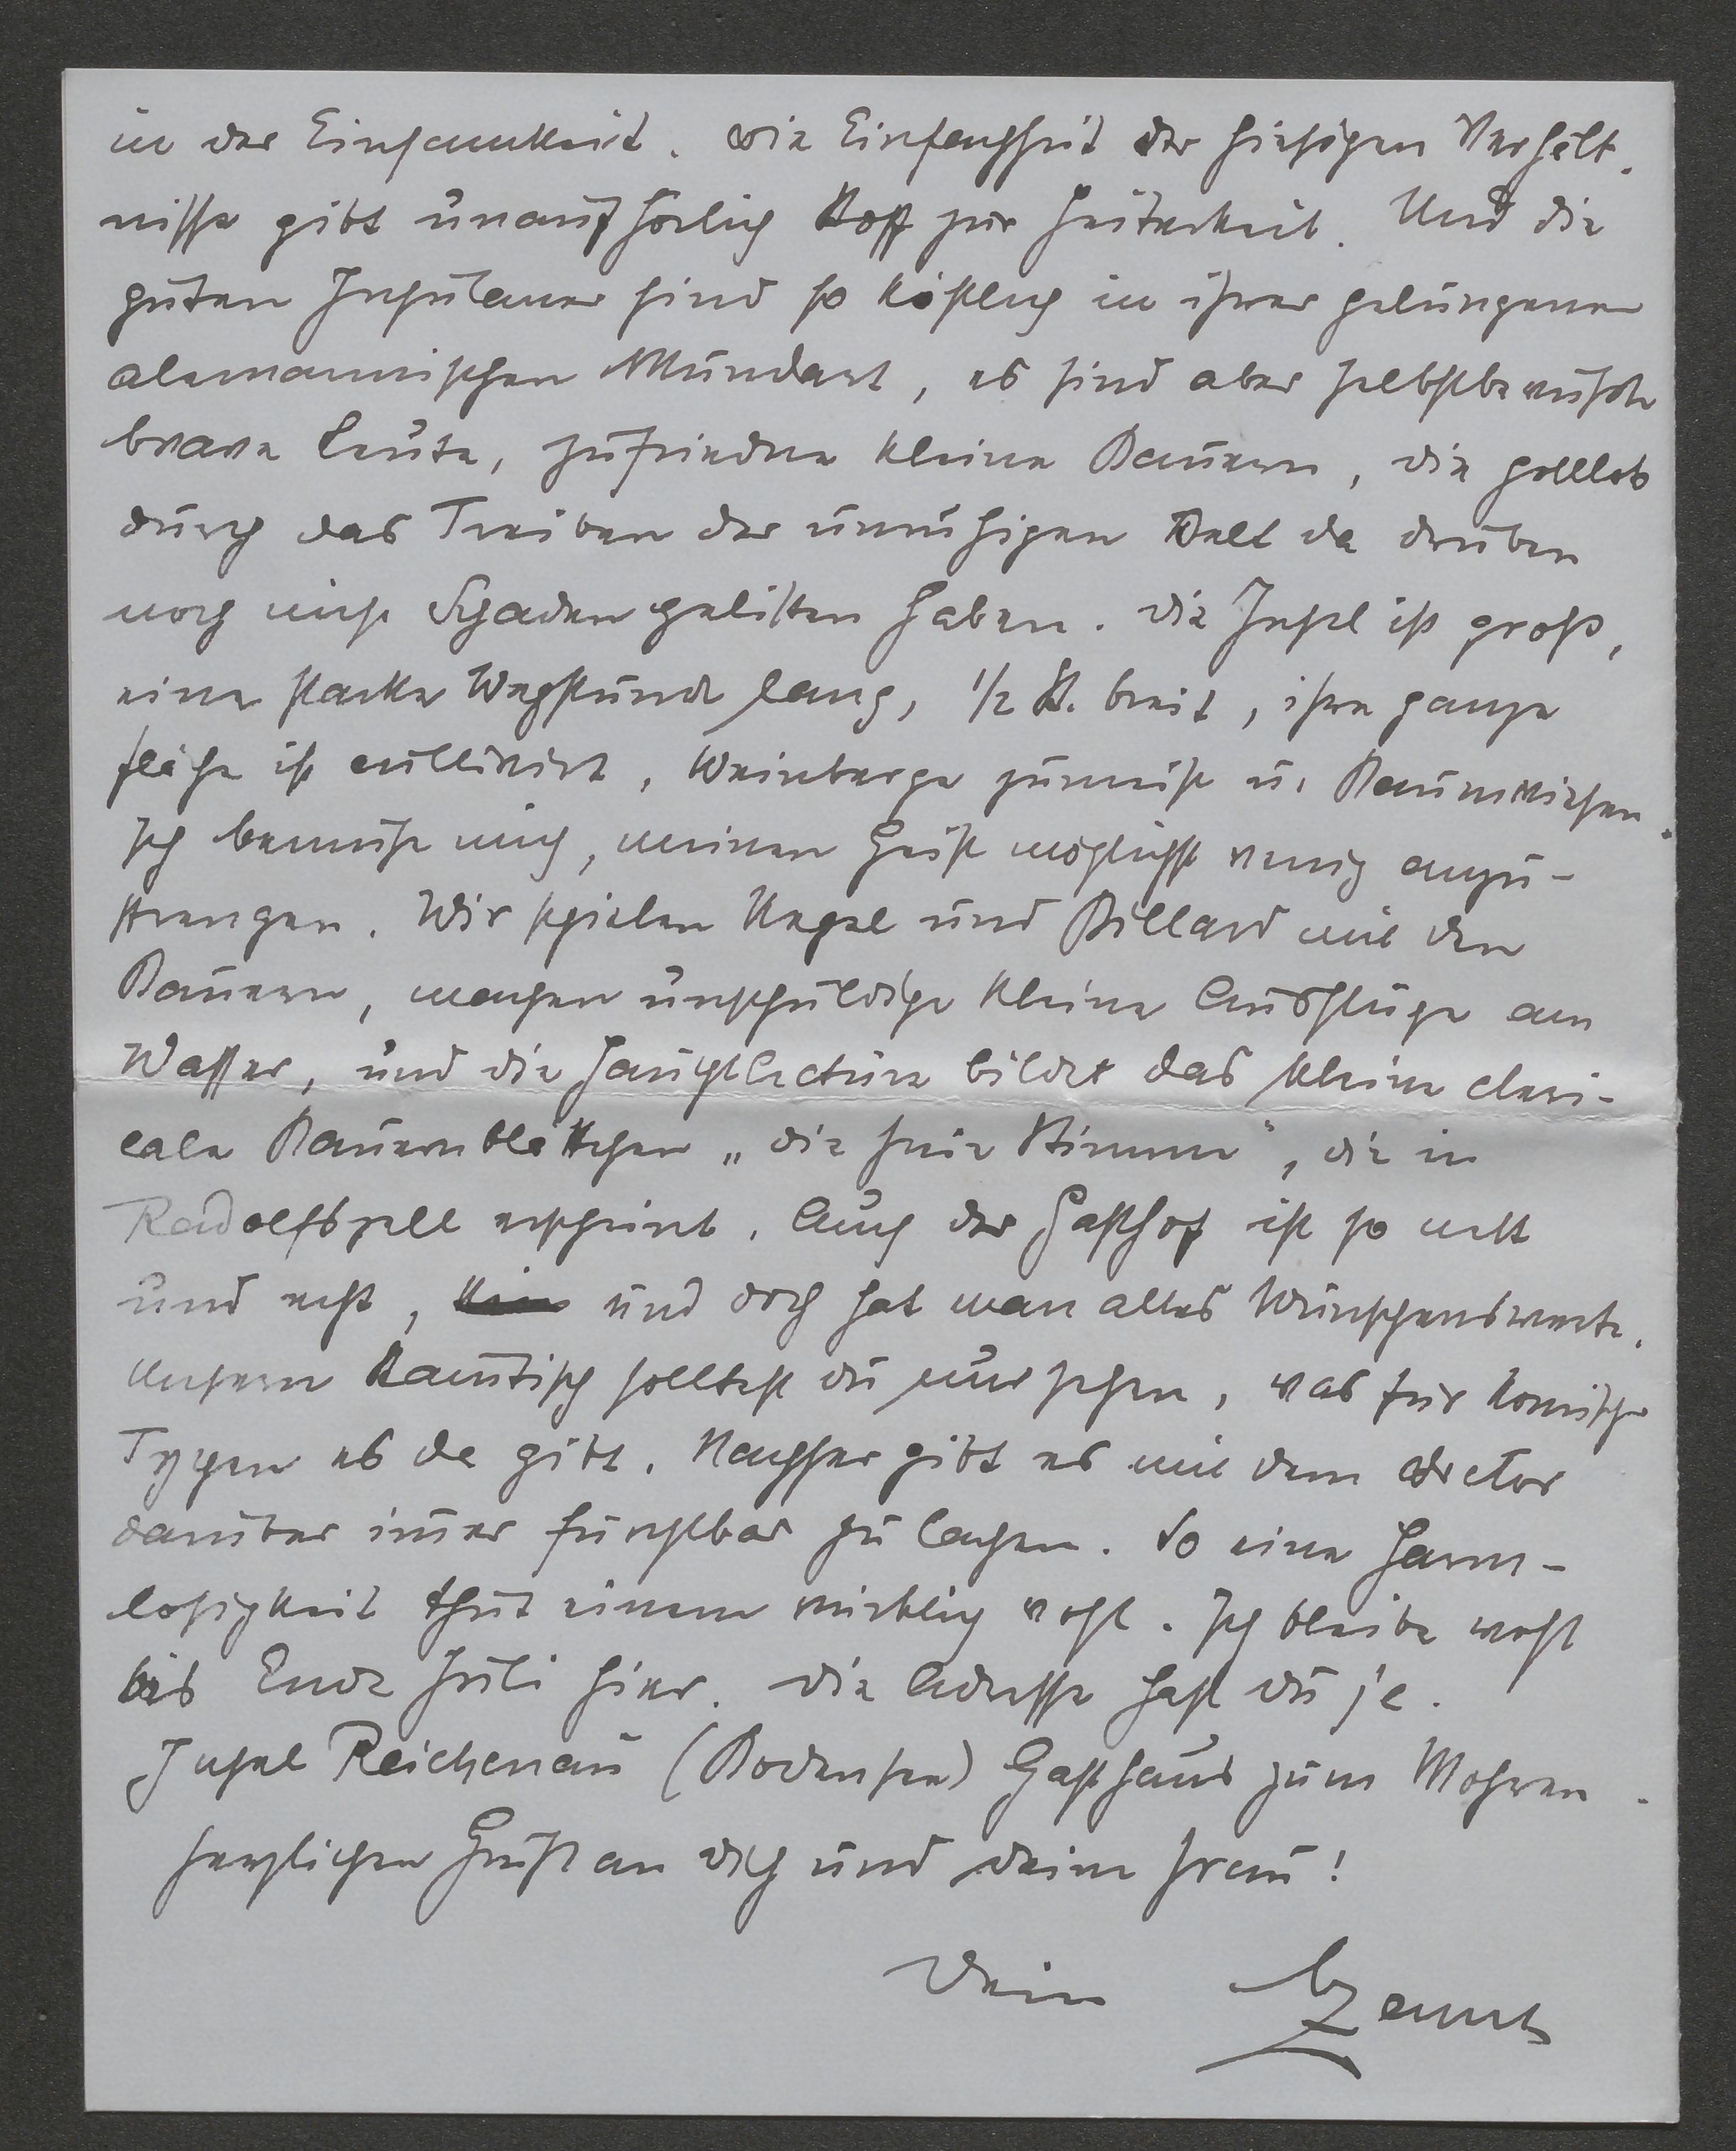 in der Einsamkeit. Die Einfachheit der hiesigen Verhält-
nisse gibt unaufhörlich Stoff zur Heiterkeit. Und die
guten Insulaner sind so köstlich in ihrer gelungenen
alemannischen Mundart, es sind aber selbstbewußte
brave Leute, zufriedene kleine Bauern, die gottlob
durch das Treiben der unruhigen Welt da drüben
noch nicht Schaden gelitten haben. Die Insel ist groß,
eine starke Wegstunde lang, 1/2 St. breit, ihre ganze
Fläche ist cultivirt, Weinberge zumeist u. Baumwiesen.
Ich bemühe mich, meinen Geist möglichst wenig anzu-
strengen. Wir spielen Kegel und Billard mit den
Bauern, machen unschuldige kleine Ausflüge am
Wasser, und die Hauptlectüre bildet das kleine cleri-
cale Bauernblättchen „die freie Stimme", die in
Radolfszell erscheint. Auch der Gasthof ist so nett
und recht, und doch hat man alles Wünschenswerte.
Unsern Stamtisch solltest du nur sehen, was für komische
Typen es da gibt. Nachher gibt es mit dem doctor
darüber imer furchtbar zu lachen. So eine Harm-
losigkeit thut einem wirklich wohl. Ich bleibe wohl
bis Ende Juli hier. Die Adresse hast du ja.
Insel Reichenau (Bodensee) Gasthaus zum Mohren.
Herzlichen Gruß an dich und deine Frau!
Dein